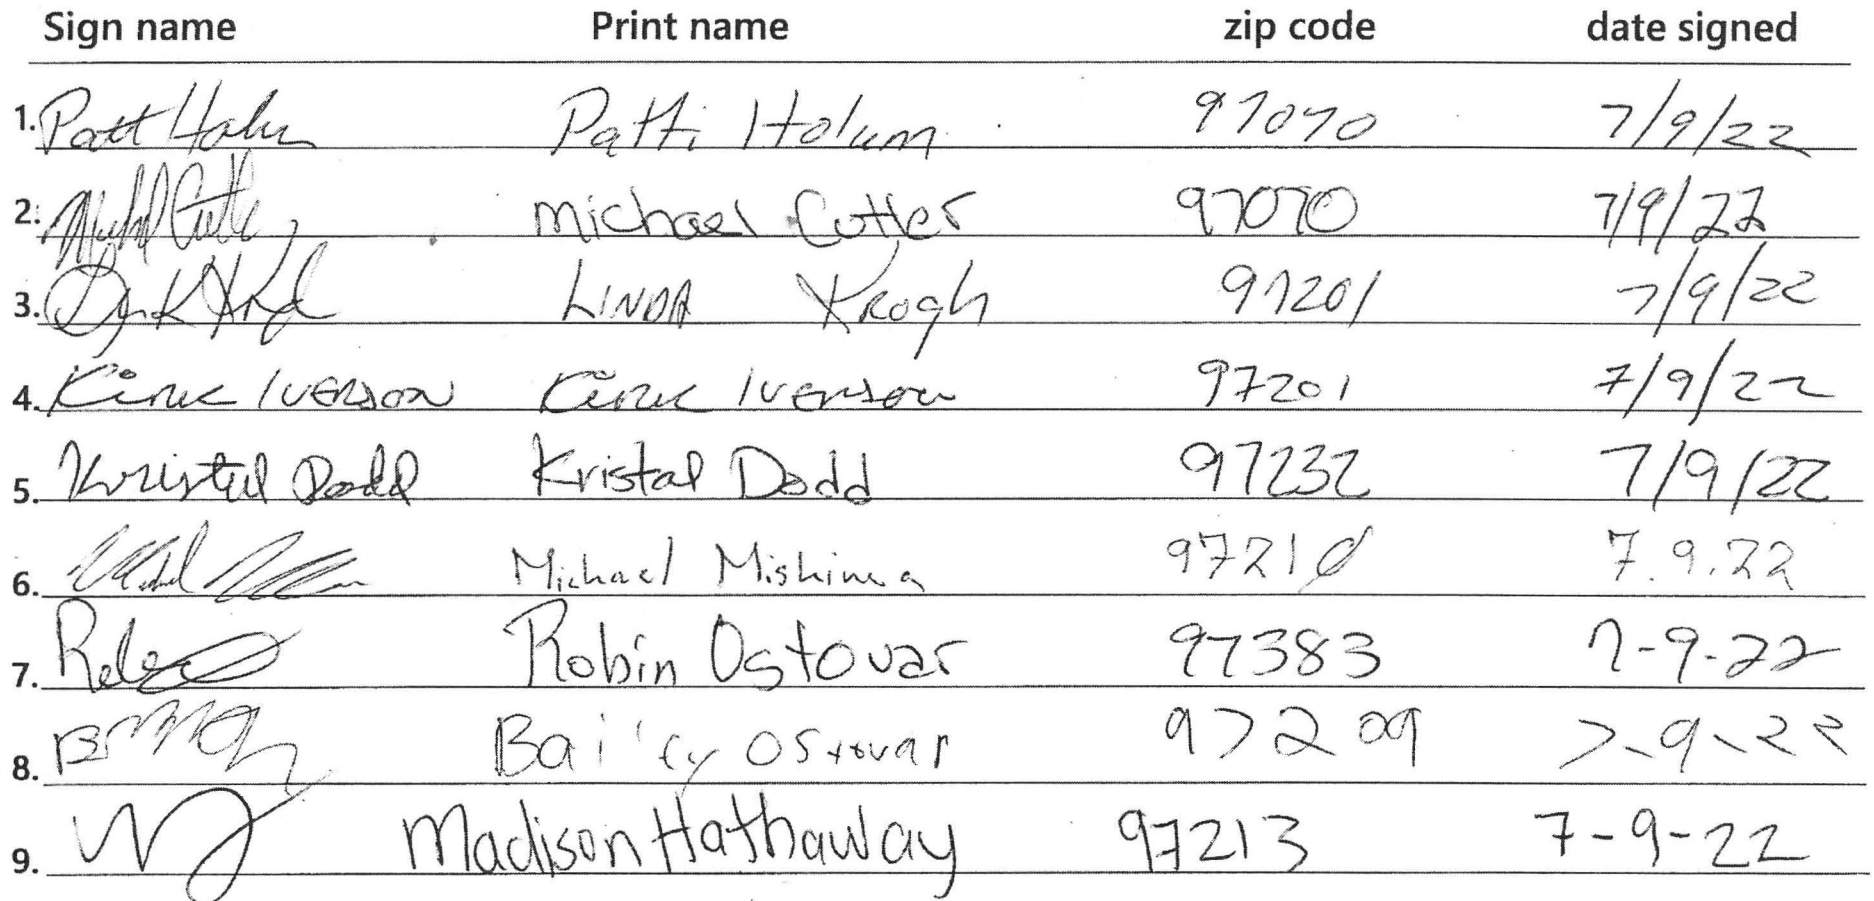 Sign name Print name zip code date signed
1. Patti Holum 97070 7/9/22
2. Michael Cutler 97070 7/9/22
3. LINDA Krogh 97201 7/9/22
4. Kirk IVERSON Kirk IVERSON 97201 7/9/22
5. Kristal Dodd Kristal Dodd 97232 7/9/22
6. Michael Mishima 97210 7.9.22
7. Robin Ostovar 97383 7-9-22
8. Bailey Ostovar 97209 7-9-22
9. Madison Hathaway 97213 7-9-22